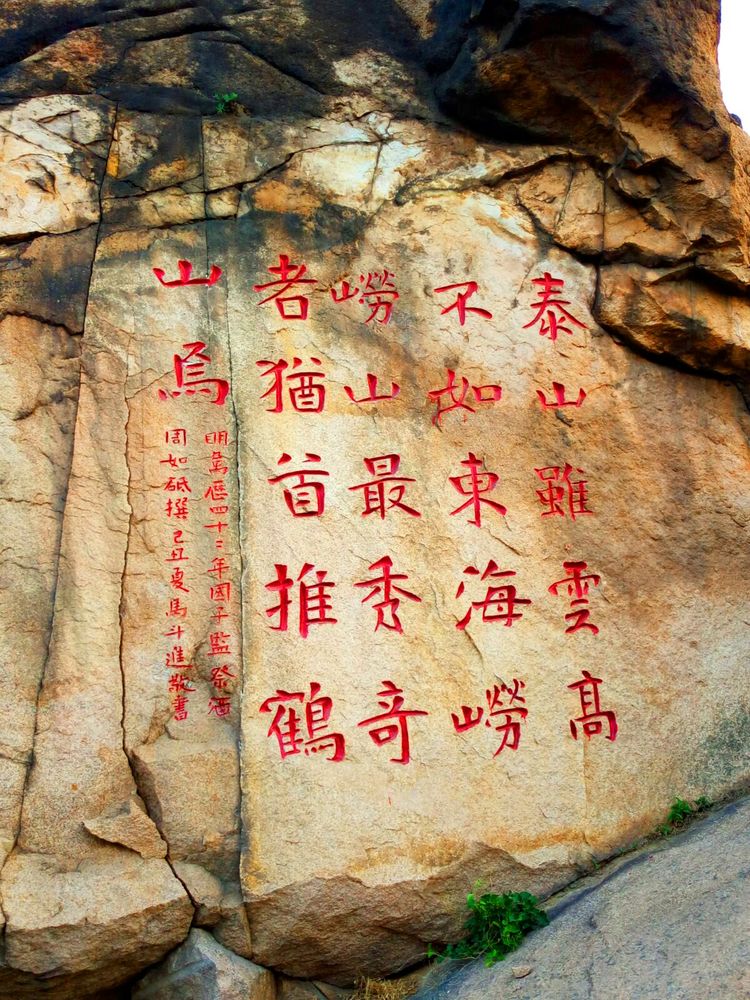 泰山雖雲高
不如東海嶗
嶗山最秀奇
者猶首推鶴
山焉
明萬歷四十二年國子監祭酒
周如砥撰己丑夏馬斗進敬書